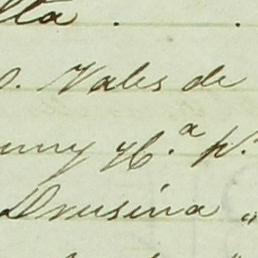 lta . .
o. Vales de
unny H.ª p.
Drusina "